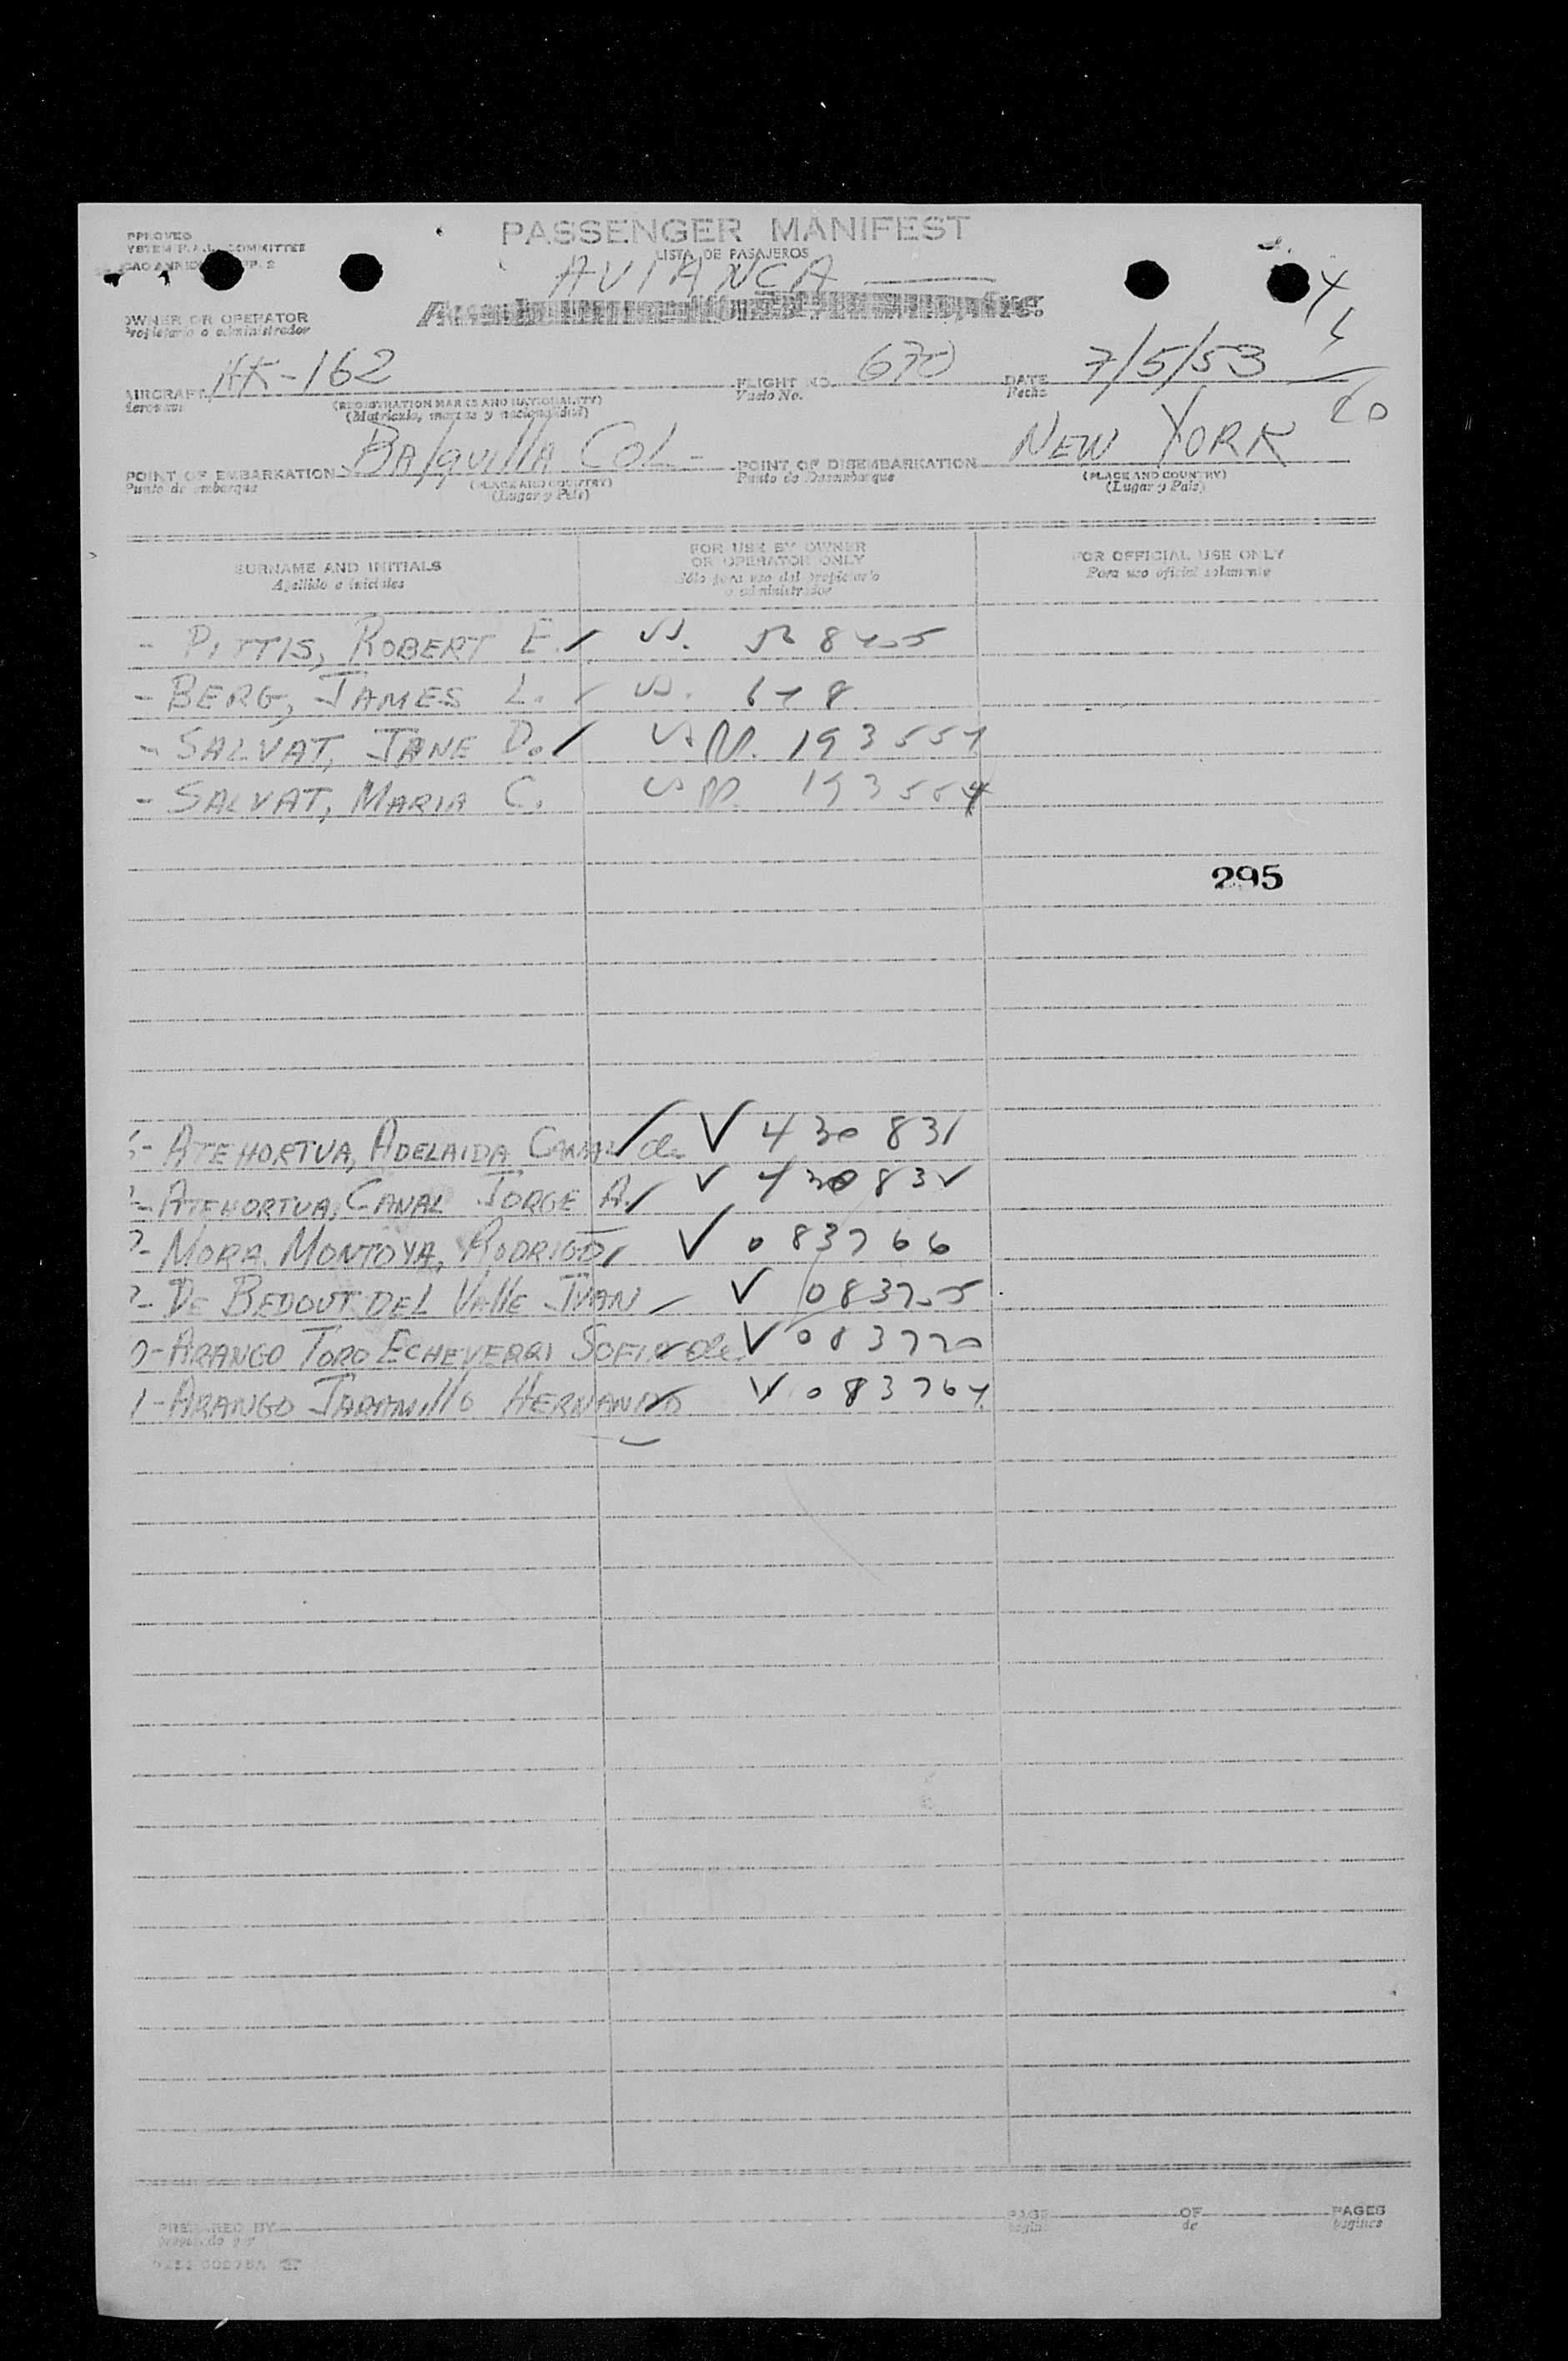 PPROVED
COMMITTEE
PASSENGER MANIFEST
LISTA DE PASAJEROS
AVIANCA
OWNER OR OPERATOR
Propietario o administrador
AIRCRAFT HK-162
FLIGHT NO. 670
Vuelo No.
DATE 7/5/53
Fecha
(REGISTRATION MARKS AND NATIONALITY)
(Matricula, marcas y nacionalidad)
POINT OF EMBARKATION BA/quillA COL-
Punto de embarque
(PLACE AND COUNTRY)
(Lugar y Pais)
POINT OF DISEMBARKATION NEW YORK
Punto de Desembarque
(PLACE AND COUNTRY)
(Lugar y Pais)
SURNAME AND INITIALS
Apellido e iniciales
FOR USE BY OWNER
OR OPERATOR ONLY
Sólo para uso del propietario
o administrador
FOR OFFICIAL USE ONLY
Para uso oficial solamente
- PITTIS, ROBERT E.
- BERG, JAMES L.
- SALVAT, JANE D. 193554
- SALVAT, MARIA C. 193554
295
- ATEHORTUA, ADELAIDA CANAL de V 430831
- ATEHORTUA, CANAL JORGE A. V
- MORA MONTOYA, RODRIGO V 083766
- DE BEDOUT DEL VAllE JUAN V 083755
- ARANGO TORO ECHEVERRI SOFIA de V 083770
1- ARANGO JARAMIllO HERNANDO V 083764
PREPARED BY
PAGE OF PAGES
de páginas